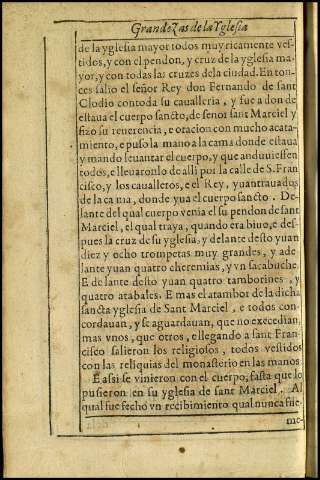 Grandezas de la Yglesia
de la yglesia mayor todos muy ricamente ves-
tidos, y con el pendon, y cruz de la yglesia ma-
yor, y con todas las cruzes de la ciudad. En ton-
ces salio el señor Rey don Fernando de sant
Clodio con toda su caualleria, y fue a don de
estaua el cuerpo sancto, de señor sant Marciel y
fizo su reuerencia, e oracion con mucho acata-
miento, e puso la mano a la cama donde estaua
y mando leuantar el cuerpo, y que anduuiessen
todos, e lleuaronlo de alli por la calle de S. Fran
cisco, y los caualleros, e el Rey, yuan trauados
de la cama, donde yua el cuerpo sancto. De-
lante del qual cuerpo venia el su pendon de sant
Marciel, el qual traya, quando era biuo, e des-
pues la cruz de su yglesia, y delante desto yuan
diez y ocho trompetas muy grandes, y ade
lante yuan quatro cheremias, y vn sacabuche.
E delante desto yuan quatro tamborines, y
quatro atabales. E mas el atambor de la dicha
sancta yglesia de Sant Marciel, e todos con-
cordauan, y se aguardauan, que no excedian,
mas vnos, que otros, e llegando a sant Fran-
cisco salieron los religiosos, todos vestidos
con las reliquias del monasterio en las manos
E assi se vinieron con el cuerpo, fasta que lo
pusieron en su yglesia de sant Marciel. Al
qual fue fecho vn recibimiento qual nunca fue-
me-